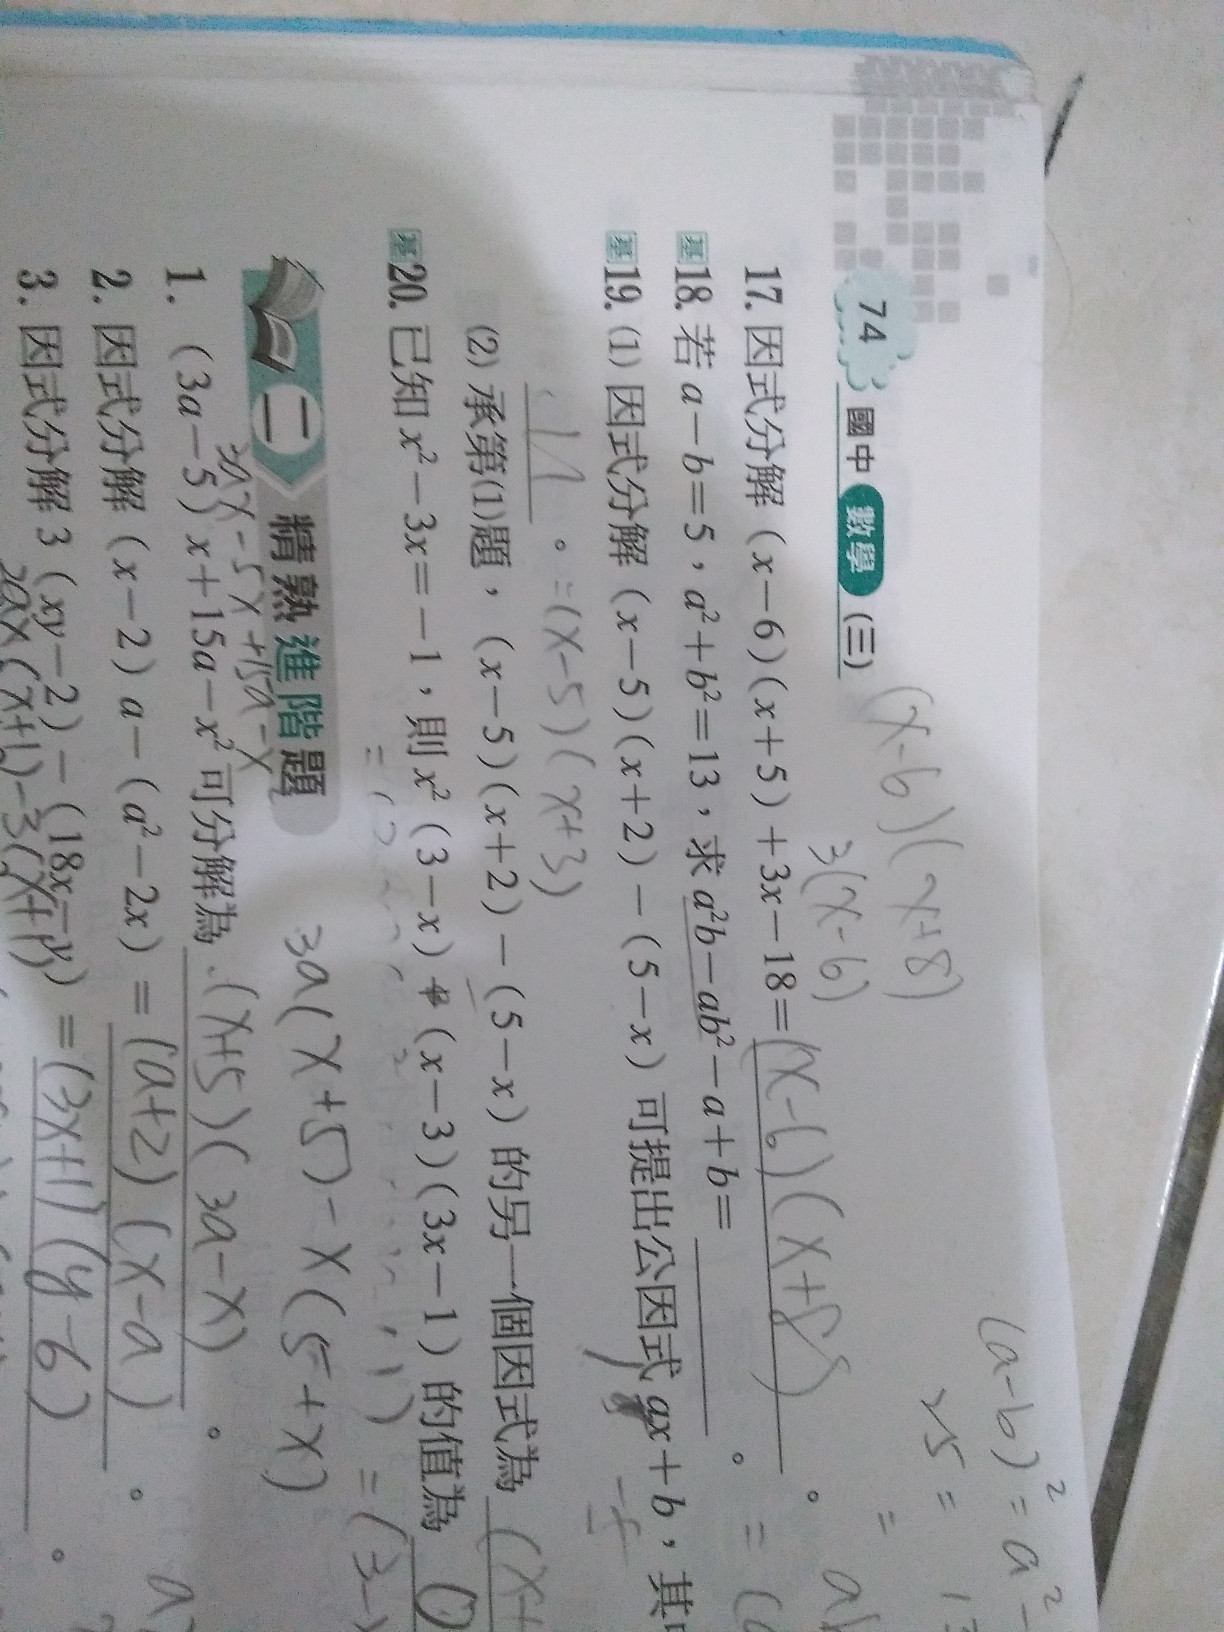 74 國中 數學 (三)
(x-6)(x+8)
3(x-6)
(a-b)²=a²-
25=
17. 因式分解 (x-6)(x+5)+3x-18=(x-6)(x+8)。
基18. 若 a-b=5，a²+b²=13，求 a²b-ab²-a+b=　。
基19. (1) 因式分解 (x-5)(x+2)-(5-x) 可提出公因式 ax+b，其
。=(x-5)(x+3)
(2) 承第(1)題，(x-5)(x+2)-(5-x) 的另一個因式為 (x+
基20. 已知 x²-3x=-1，則 x²(3-x)+(x-3)(3x-1) 的值為 0
二 精熟進階題
3a(x+5)-x(5+x)
3ax-5x+15a-x
1. (3a-5)x+15a-x² 可分解為 (x+5)(3a-x)。
2. 因式分解 (x-2)a-(a²-2x)=(a+2)(x-a)。
3. 因式分解 3(xy-2)-(18x-y)=(3x+1)(y-6)。